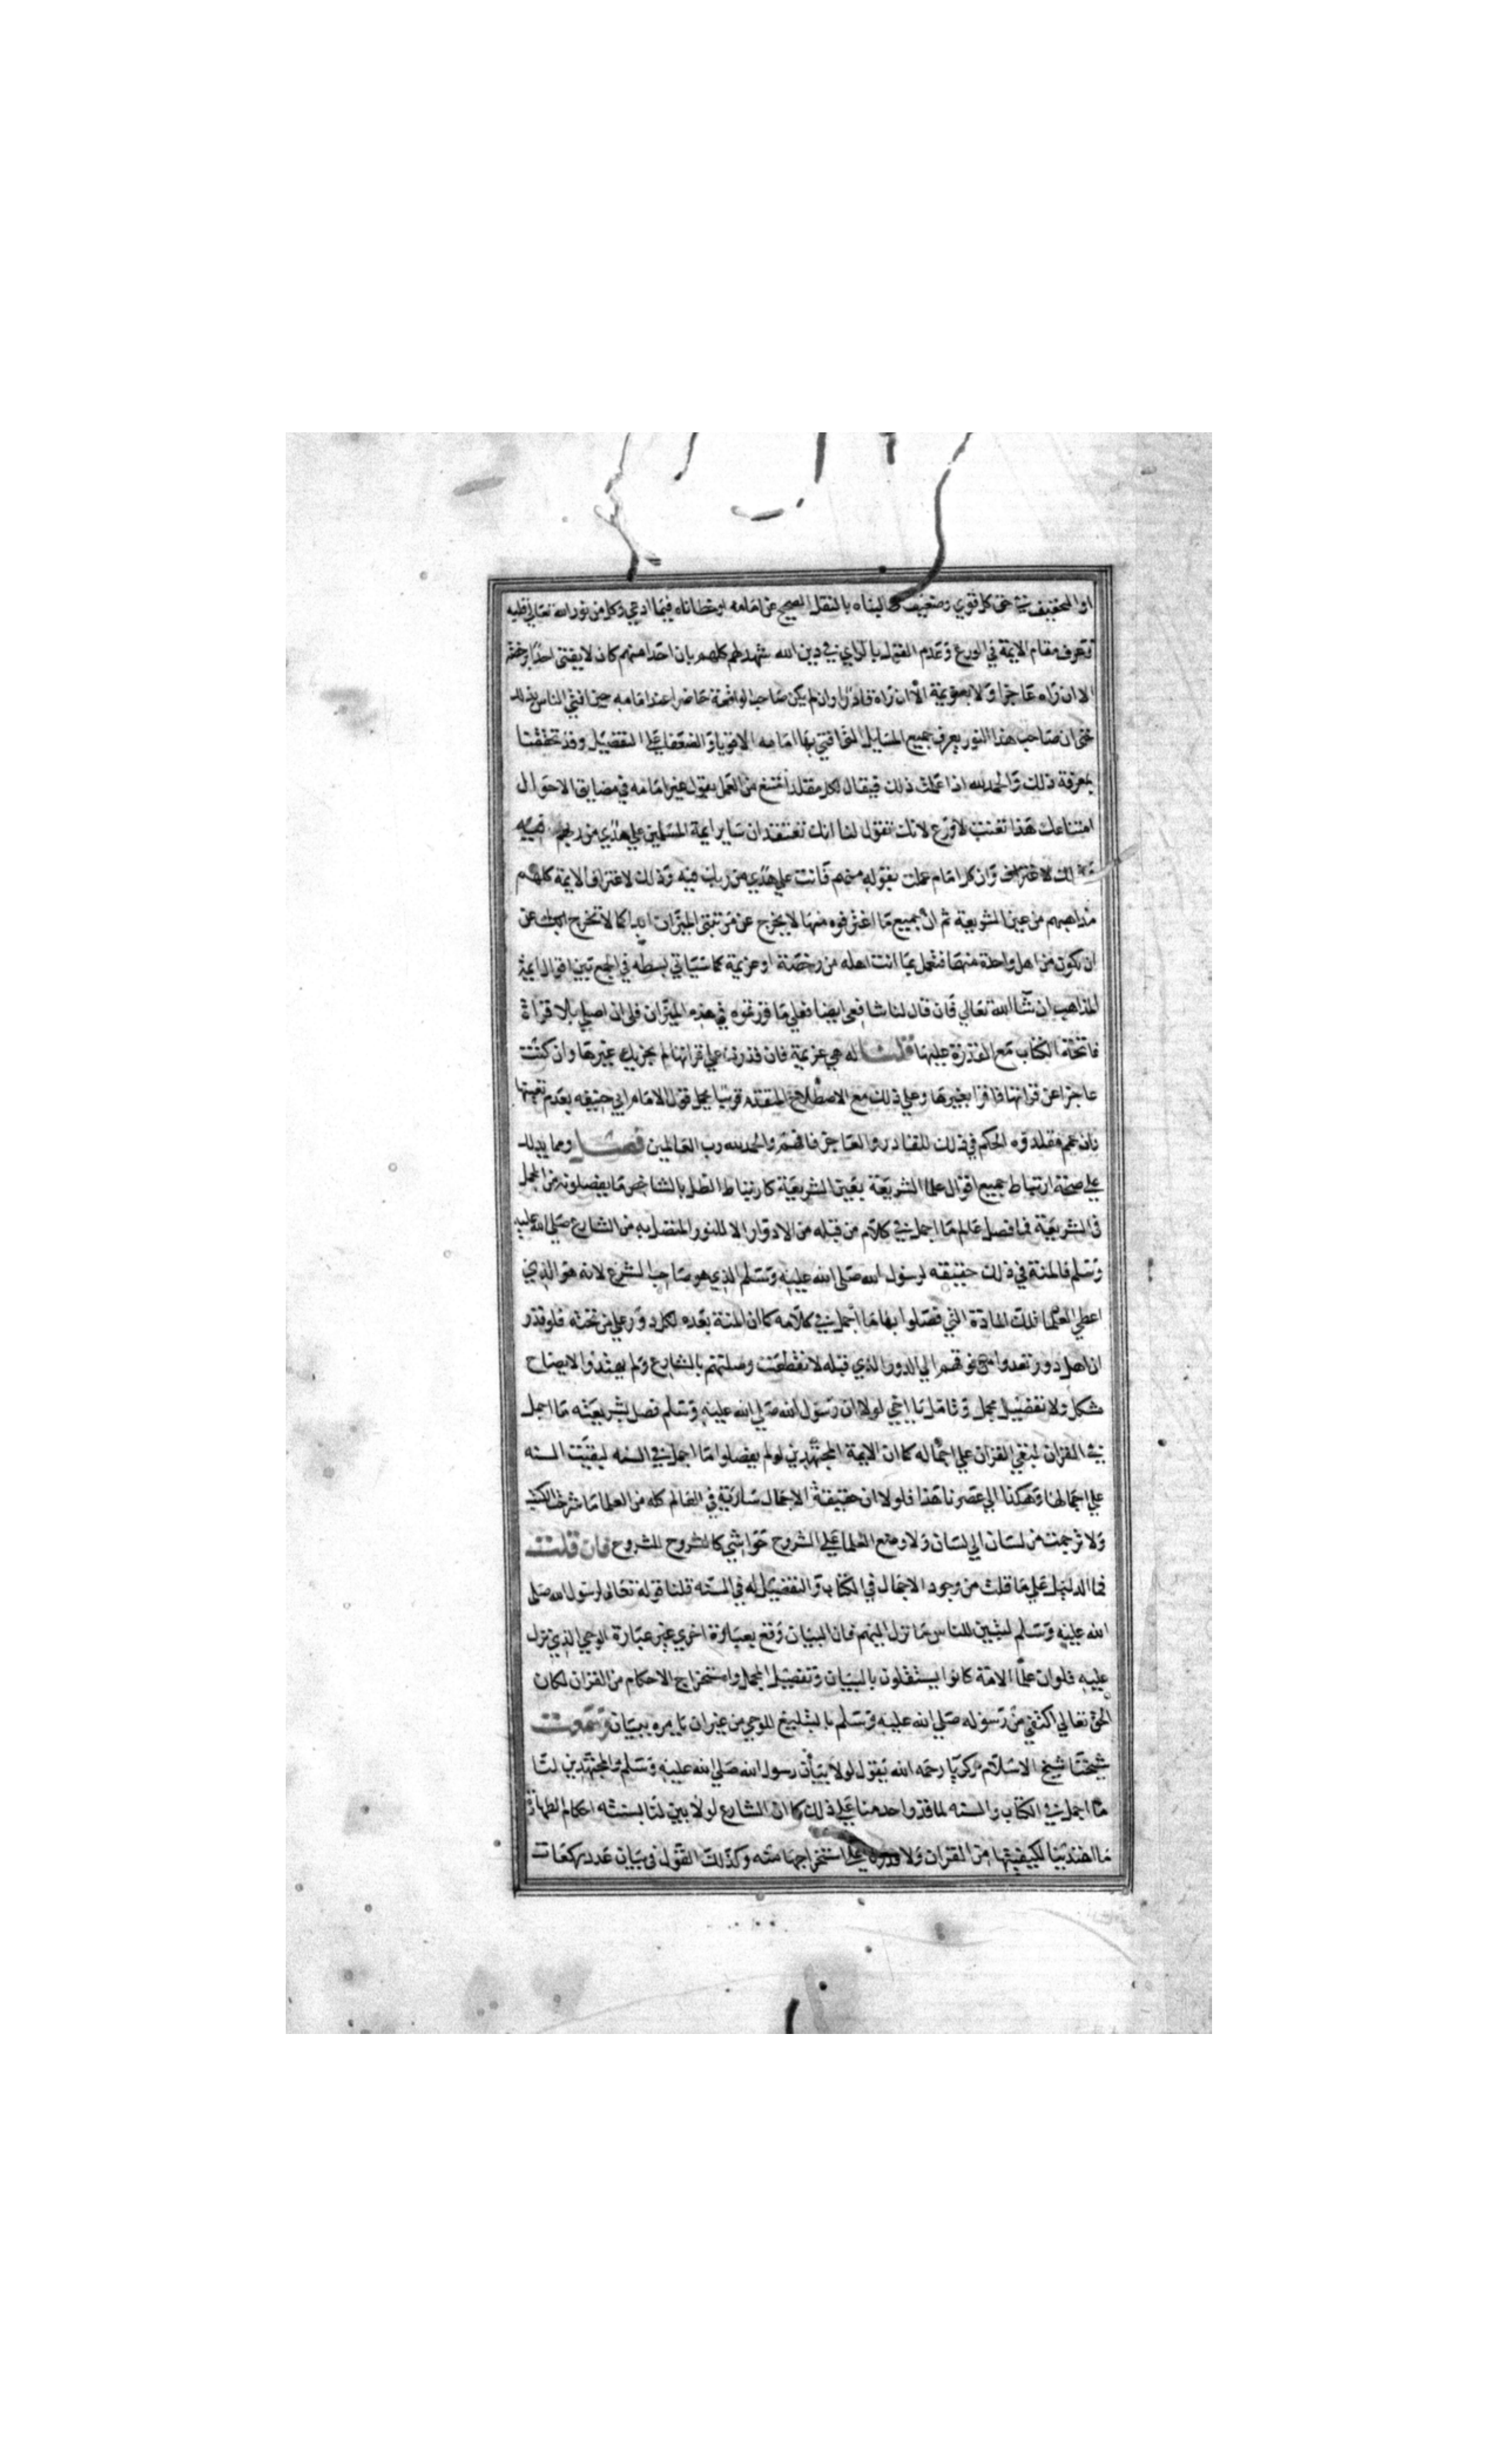 او التخفيف في حق كل قوي وضعيف طالبناه بالنقل الصحيح عن امامه او خطاناه فيما ادعي وكل من نور الله تعالي قلبه
وعرف مقام الايمة في الورع وعدم القول بالراي في دين الله شهد لهم كلهم بان احدا منهم كان لا يفتي احدا برخصة
الا ان راه عاجزا ولا بعزيمة الا ان راه قادرا وان لم يكن صاحب الواقعة حاضرا عند امامه حين افتي الناس بذلك
حتي ان صاحب هذا النور يعرف جميع المسايل التي افتي بها امامه الاقويا والضعفا علي التفصيل وقد تحققنا
بمعرفة ذلك والحمد لله اذا علمت ذلك فيقال لكل مقلد امتنع من العمل بقول غير امامه في مضايق الاحوال
امتناعك هذا تعنت لا ورع لانك تقول لنا انك تعتقد ان ساير ايمة المسلمين علي هدي من ربهم
لاغترافهم وان كل امام عملت بقوله منهم فانت علي هدي من ربك فيه وذلك لاغتراف الايمة كلهم
مذاهبهم من عين الشريعة ثم ان جميع ما اغترفوه منها لا يخرج عن مرتبتي الميزان ابدا كما لا تخرج انت عن
ان تكون من اهل واحدة منها فتعمل بما انت اهله من رخصة او عزيمة كما سياتي بسطه في الجمع بين اقوال ايمة
المذاهب ان شا الله تعالي فان قال لنا شافعي ايضا فعلي ما قررتموه في هذه الميزان فلي ان اصلي بلا قراة
فاتحة الكتاب مع القدرة عليها قلنا له هي عزيمة فان قدرت علي قراتها لم يجزيك غيرها وان كنت
عاجزا عن قراتها فاقرا بغيرها وعلي ذلك مع الاصطلاح المتقدم قريبا يحمل قول الامام ابي حنيفه بعدم تعينها
وان عمم مقلدوه الحكم في ذلك للقادر والعاجز فافهم والحمد لله رب العالمين فصل ومما يدلك
علي صحة ارتباط جميع اقوال علما الشريعة بعين الشريعة كارتباط الظل بالشاخص ما يفصلونه من المجمل
في الشريعة فما فصل عالم ما اجمل في كلام من قبله من الادوار الا للنور المتصل به من الشارع صلي الله عليه
وسلم فالمنة في ذلك حقيقه لرسول الله صلي الله عليه وسلم الذي هو صاحب الشرع لانه هو الذي
اعطي العلما تلك المادة التي فصلوا بها ما اجمل في كلامه كما ان المنة بعده لكل دور علي من تحته فلو قدر
ان اهل دور تعدوا من فوقهم الي الدور الذي قبله لانقطعت وصلتهم بالشارع ولم يهتدوا لايضاح
مشكل ولا تفصيل مجمل وتامل يا اخي لولا ان رسول الله صلي الله عليه وسلم فصل بشريعته ما اجمل
في القران لبقي القران علي اجماله كما ان الايمة المجتهدين لو لم يفصلوا ما اجمل في السنه لبقيت السنه
علي اجمالها وهكذا الي عصرنا هذا فلولا ان حقيقة الاجمال سارية في العالم كله من العلما ما شرحت الكتب
ولا ترجمت من لسان الي لسان ولا وضع العلما علي الشروح حواشي كالشروح للشروح فان قلت
فما الدليل علي ما قلت من وجود الاجمال في الكتاب والتفصيل له في السنه قلنا قوله تعالي لرسول الله صلي
الله عليه وسلم لتبين للناس ما نزل اليهم فان البيان وقع بعبارة اخري غير عبارة الوحي الذي نزل
عليه فلو ان علما الامة كانوا يستقلون بالبيان وتفصيل المجمل واستخراج الاحكام من القران لكان
الحق تعالي اكتفي من رسوله صلي الله عليه وسلم بالتبليغ للوحي من غير ان يامره ببيان وسمعت
شيخنا شيخ الاسلام زكريا رحمه الله يقول لولا بيان رسول الله صلي الله عليه وسلم والمجتهدين لنا
ما اجمل في الكتاب والسنه لما قدر واحد منا علي ذلك كما ان الشارع لولا بين لنا بسنته احكام الطهارة
ما اهتدينا لكيفيتها من القران ولا قدرنا علي استخراجها منه وكذلك القول في بيان عدد ركعات